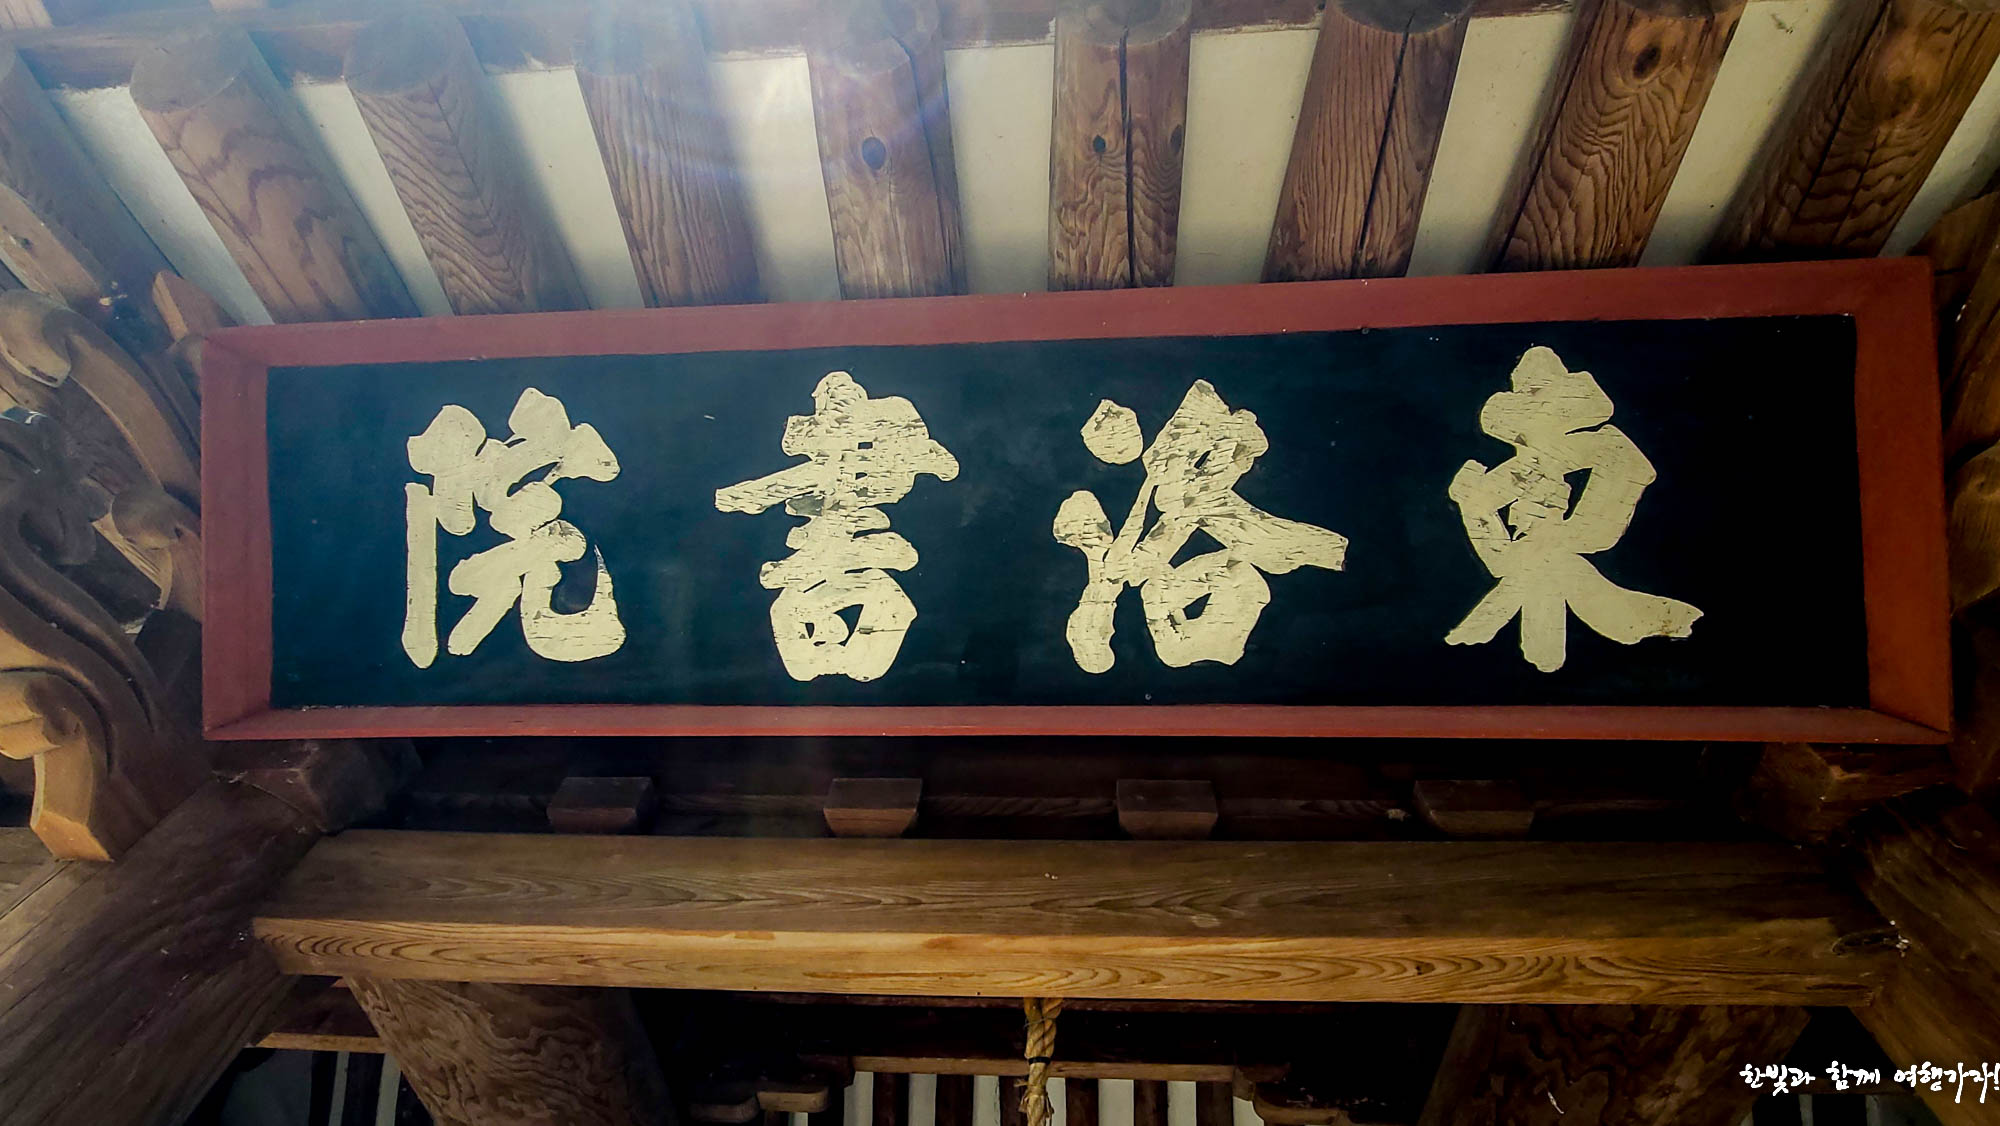 東洛書院
한빛과 함께 여행가자!